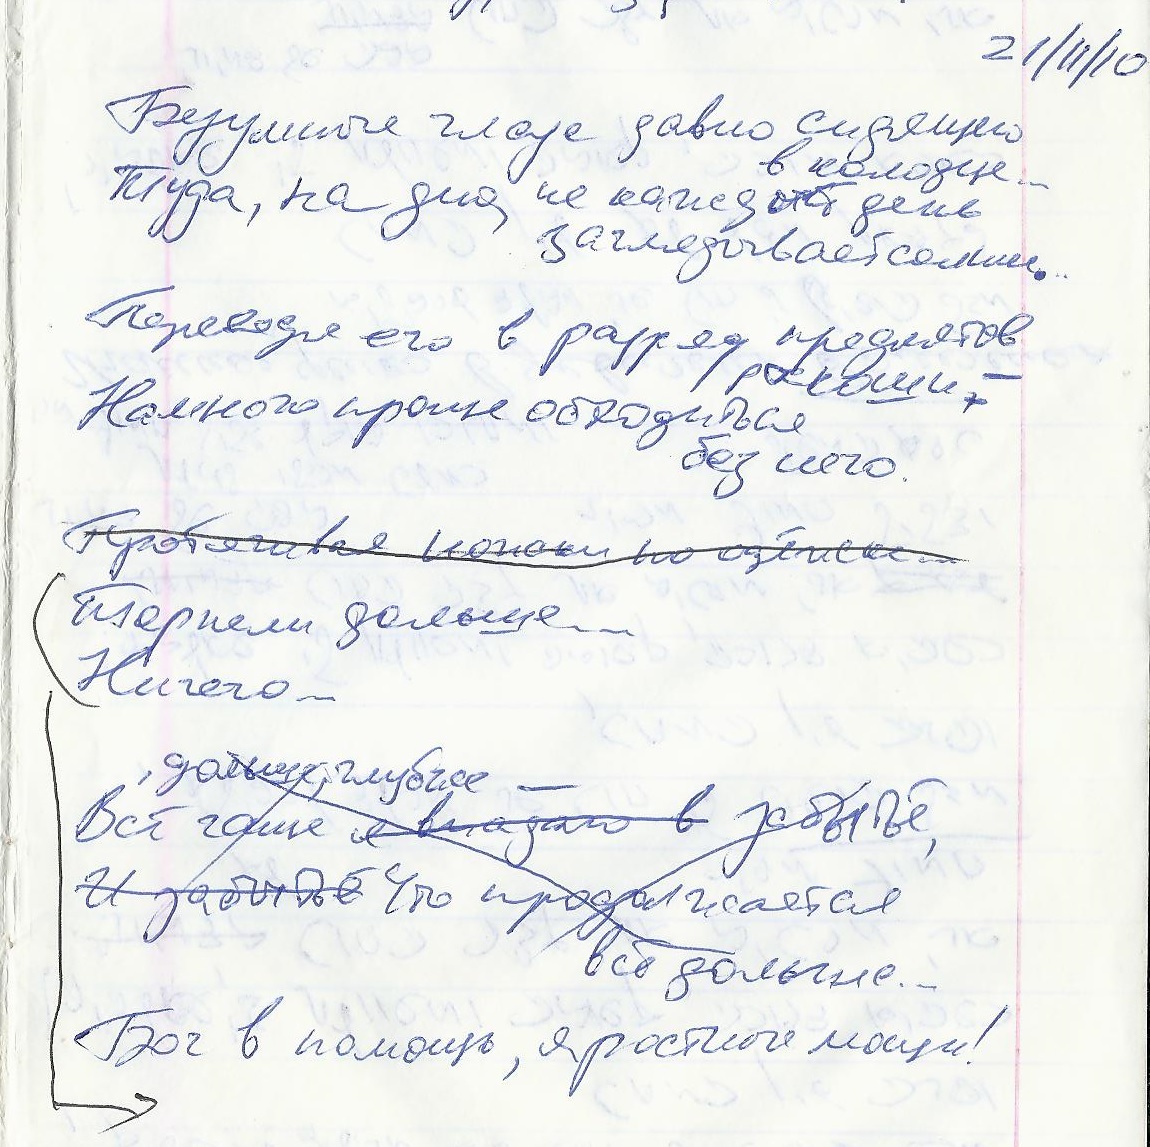 21/11/10
Безумные глаза давно сидящего
в колодце...
Туда, на дно, не каждый день
заглядывает солнце...
Переводя его в разряд предметов
роскоши, –
Намного проще обходиться
без него.
Протягивая
Терпели дальше...
Ничего...
, дальше, глубже —
Всё чаще я впадаю в забытьё,
И забытьё Что продолжается
всё дольше...
Бог в помощь, яростные мощи!